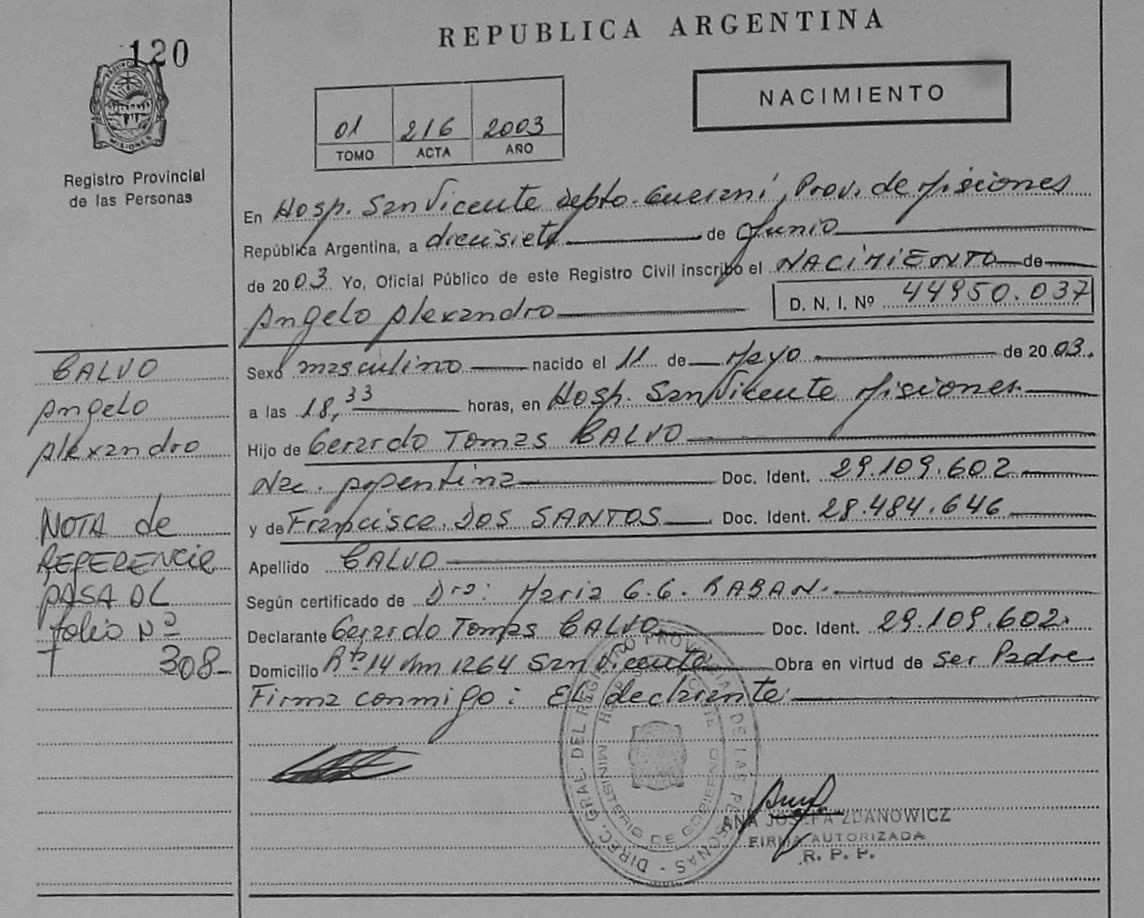 REPUBLICA ARGENTINA
120
PROVINCIA
MISIONES
Registro Provincial
de las Personas
01 216 2003
TOMO ACTA AÑO
NACIMIENTO
En Hosp. San Vicente Depto. Guarani, Prov. de Misiones
República Argentina, a diecisiete de Junio
de 2003. Yo, Oficial Público de este Registro Civil inscribo el NACIMIENTO de
Angelo Alexandro D. N. I. Nº 44950.037
Sexo masculino nacido el 11 de Mayo de 2003.
a las 18,33 horas, en Hosp. San Vicente Misiones.
Hijo de Gerardo Tomas CALVO
Nac. Argentina Doc. Ident. 29.109.602
y de Francisca DOS SANTOS Doc. Ident. 28.484.646
Apellido CALVO
Según certificado de Dra: Maria G.G. RABAN.
Declarante Gerardo Tomas CALVO Doc. Ident. 29.109.602.
Domicilio Rta 14 Km 1264 San Vicente Obra en virtud de ser Padre
Firma conmigo: EL declarante.
CALVO
Angelo
Alexandro
NOTA de
REFERENCIA
PASA AL
folio Nº
T 308
DIREC. GRAL. DEL REGISTRO PROVINCIAL DE LAS PERSONAS
MINISTERIO DE GOBIERNO
ANA JOSEFA ZDANOWICZ
FIRMA AUTORIZADA
R. P. P.